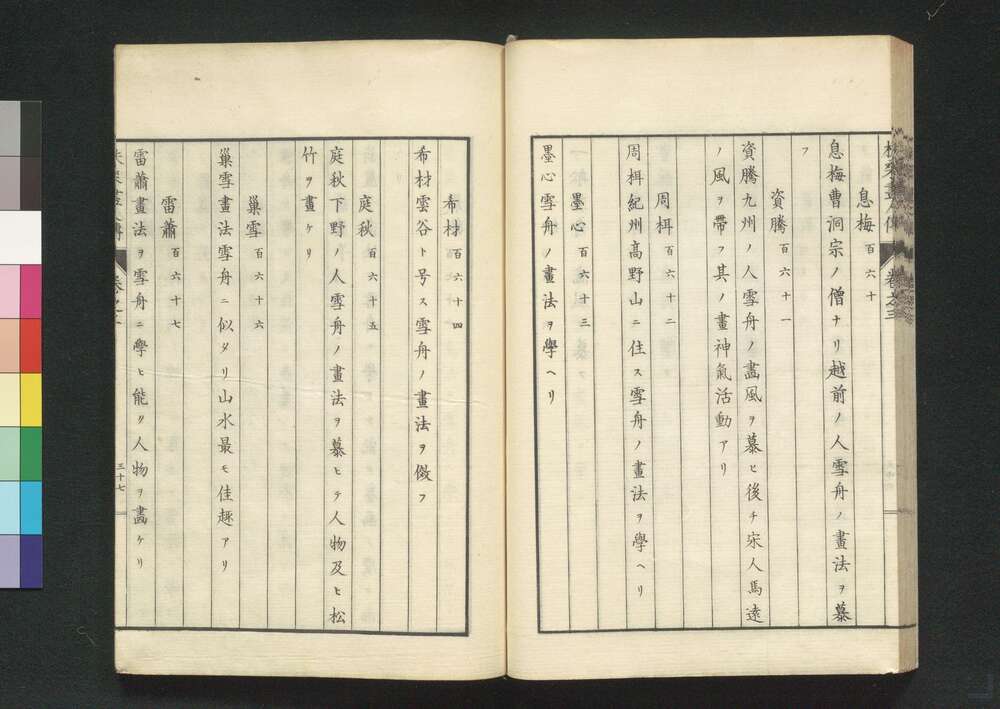 息梅 百六十
息梅曹洞宗ノ僧ナリ越前ノ人雪舟ノ畫法ヲ慕
フ
資騰 百六十一
資騰九州ノ人雪舟ノ畵風ヲ慕ヒ後チ宋人馬遠
ノ風ヲ帶フ其ノ畫神氣活動アリ
周栮 百六十二
周栮紀州高野山ニ住ス雪舟ノ畫法ヲ學ヘリ
墨心 百六十三
墨心雪舟ノ畫法ヲ學ヘリ
希材 百六十四
希材雲谷ト号ス雪舟ノ畫法ヲ倣フ
庭秋 百六十五
庭秋下野ノ人雪舟ノ畫法ヲ慕ヒテ人物及ヒ松
竹ヲ畫ケリ
巢雪 百六十六
巢雪畫法雪舟ニ似タリ山水最モ佳趣アリ
雷蕭 百六十七
雷蕭畫法ヲ雪舟ニ學ヒ能ク人物ヲ畵ケリ
三十七